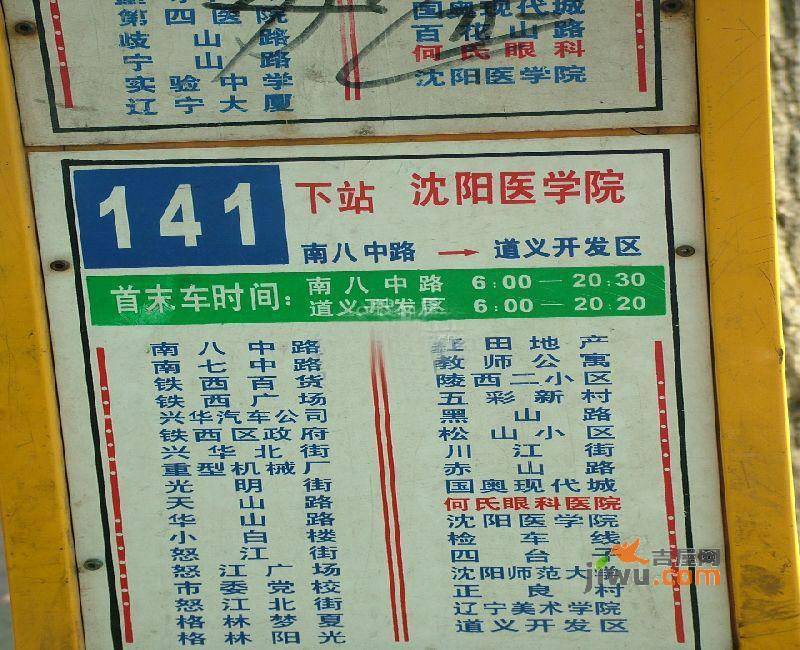 第四医院
岐山路
宁山路
实验中学
辽宁大厦
国奥现代城
百花山路
何氏眼科
沈阳医学院
141
下站 沈阳医学院
南八中路 → 道义开发区
首末车时间：
南八中路 6:00—20:30
道义开发区 6:00—20:20
南八中路
南七中路
铁西百货
铁西广场
兴华汽车公司
铁西区政府
兴华北街
重型机械厂
光明街
天山路
华山路
小白楼
怒江街
怒江广场
市委党校
怒江北街
格林梦夏
格林阳光
田地产
教师公寓
陵西二小区
五彩新村
黑山路
松山小区
川江街
赤山路
国奥现代城
何氏眼科医院
沈阳医学院
检车线
四台子
沈阳师范大
正良村
辽宁美术学院
道义开发区
吉屋网
jiwu.com